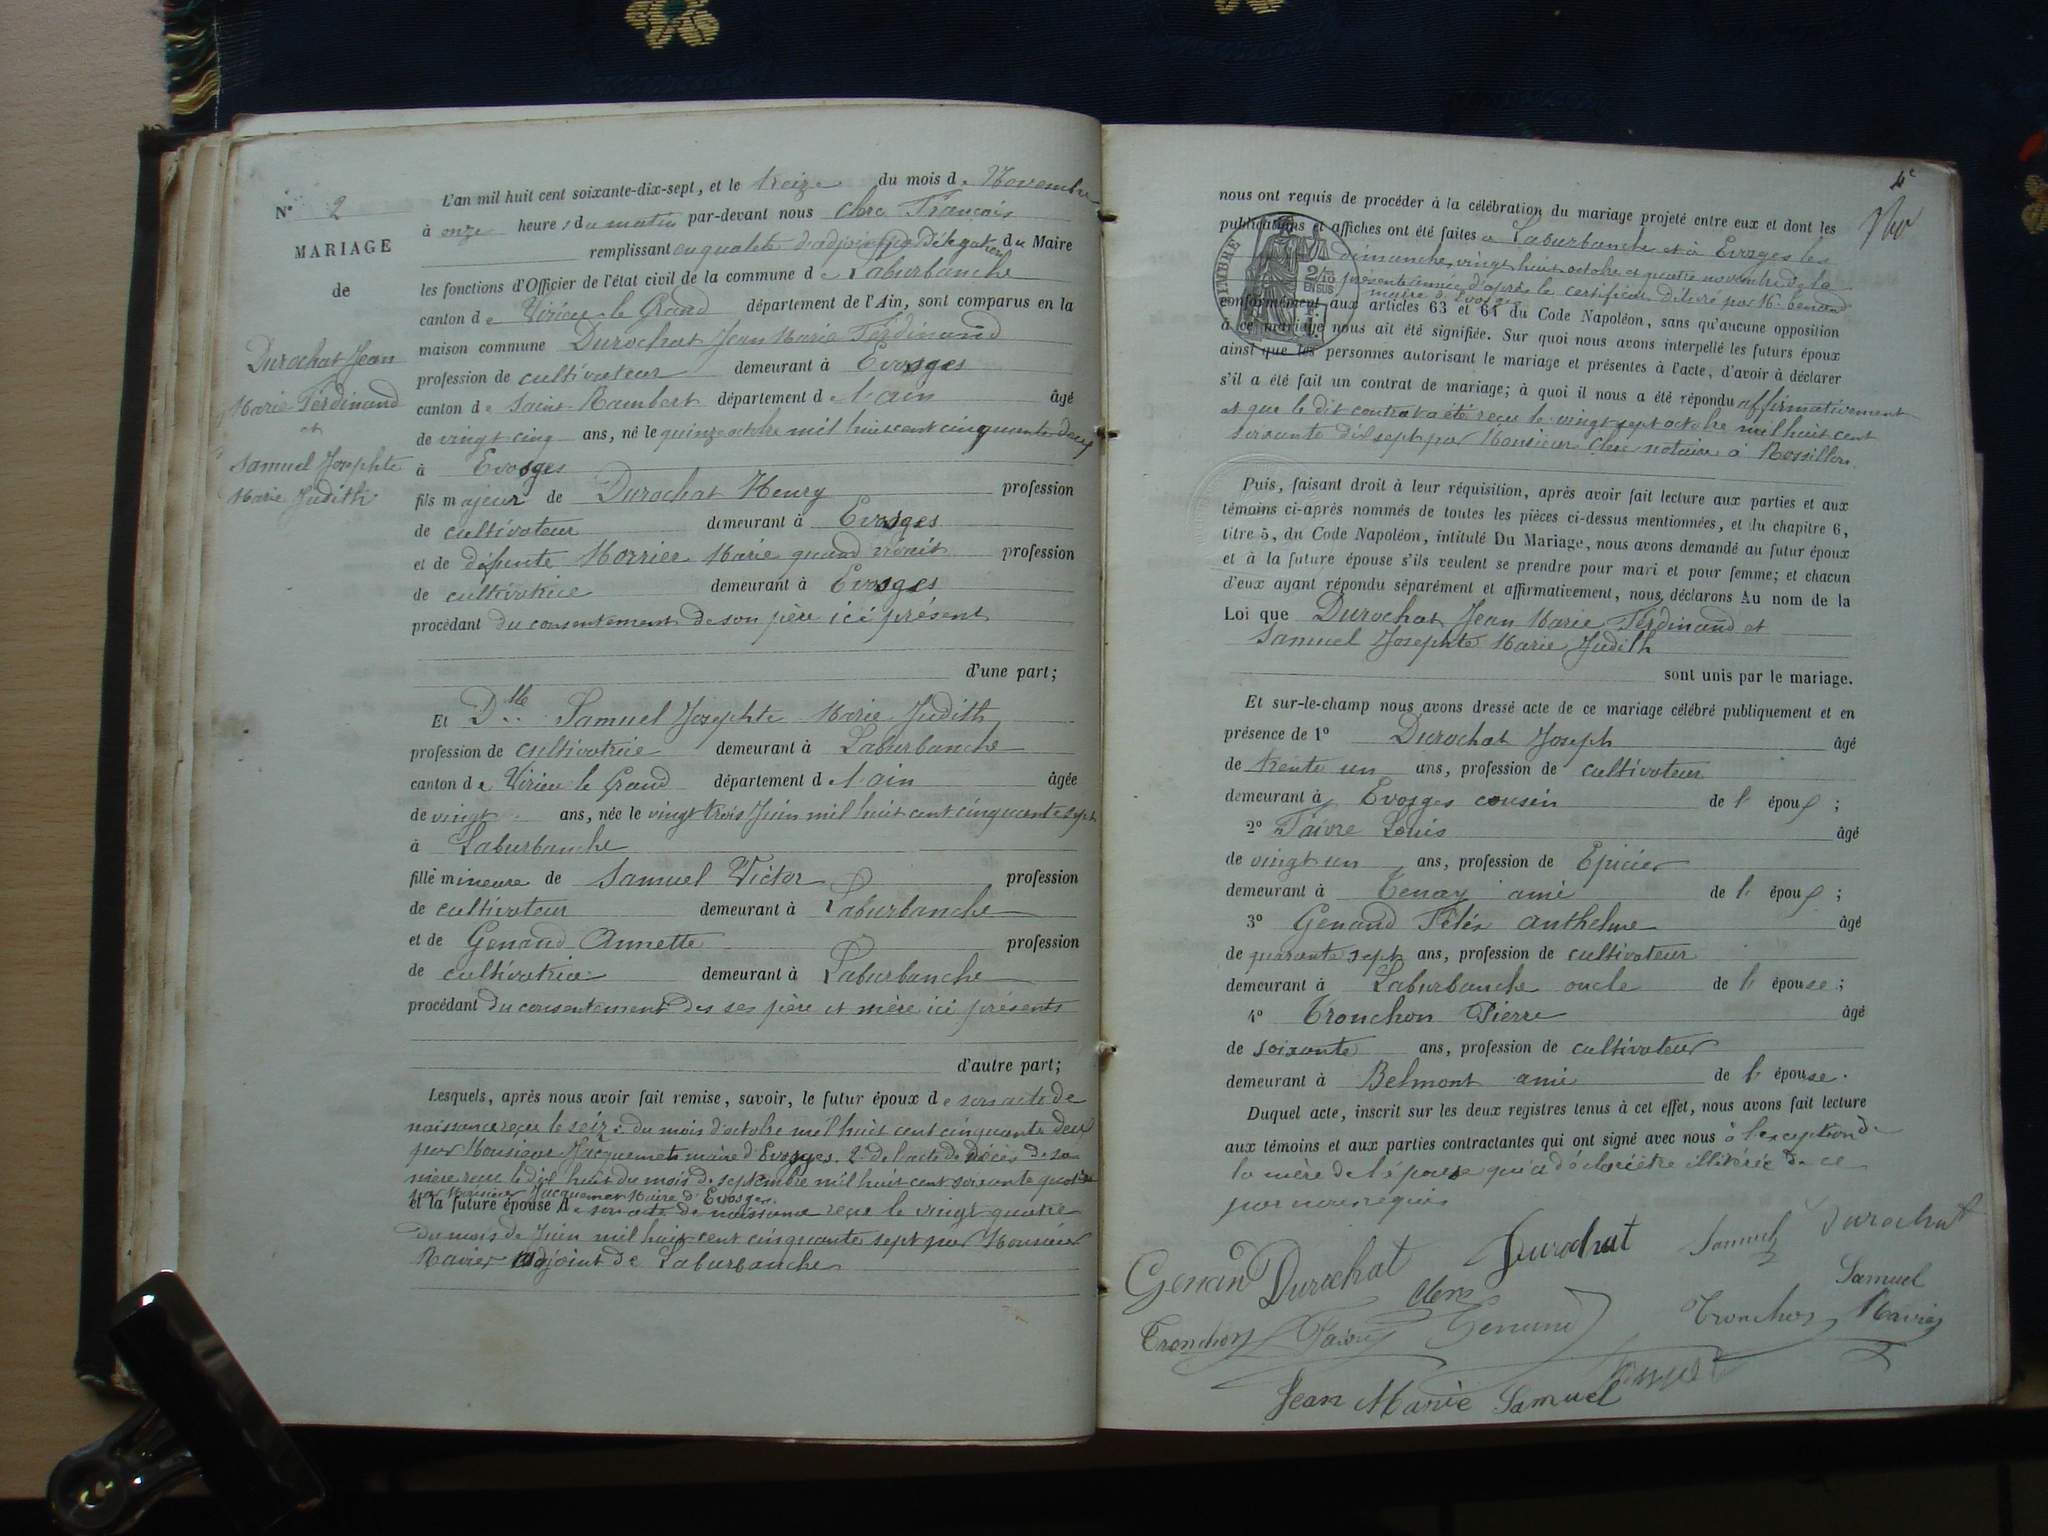 N° 2
MARIAGE
de
Durochat Jean
Marie Ferdinand
et
Samuel Josephte
Marie Judith
L'an mil huit cent soixante-dix-sept, et le treize du mois de Novembre
à onze heures du matin par-devant nous Clerc François
remplissant en qualité d'adjoint par délégation du Maire
les fonctions d'Officier de l'état civil de la commune de Laburbanche
canton de Virieu le Grand département de l'Ain, sont comparus en la
maison commune Durochat Jean Marie Ferdinand
profession de cultivateur demeurant à Evosges
canton de Saint-Rambert département de l'ain âgé
de vingt cinq ans, né le quinze octobre mil huit cent cinquante deux
à Evosges
fils majeur de Durochat Henry profession
de cultivateur demeurant à Evosges
et de défunte Morrier Marie quand vivait profession
de cultivatrice demeurant à Evosges
procédant du consentement de son père ici présent
d'une part;
Et Dlle Samuel Josephte Marie Judith
profession de cultivatrice demeurant à Laburbanche
canton de Virieu le Grand département de l'ain âgée
de vingt ans, née le vingt trois Juin mil huit cent cinquante sept
à Laburbanche
fille mineure de Samuel Victor profession
de cultivateur demeurant à Laburbanche
et de Genand Annette profession
de cultivatrice demeurant à Laburbanche
procédant du consentement des ses père et mère ici présents
d'autre part;
Lesquels, après nous avoir fait remise, savoir, le futur époux de son acte de
naissance reçu le seize du mois d'octobre mil huit cent cinquante deux
par Monsieur Jacquemet maire d'Evosges. 2° de l'acte de décès de sa
mère reçu le dix huit du mois de septembre mil huit cent soixante quatorze
par Monsieur Jacquemet Maire d'Evosges
et la future épouse de son acte de naissance reçu le vingt quatre
du mois de Juin mil huit cent cinquante sept par Monsieur
Ravier adjoint de Laburbanche
nous ont requis de procéder à la célébration du mariage projeté entre eux et dont les
publications et affiches ont été faites à Laburbanche et à Evosges les
dimanches vingt huit octobre et quatre novembre de la
présente année, d'après le certificat délivré par M. benand
maire d'Evosges
TIMBRE
2/10 EN SUS
conformément aux articles 63 et 64 du Code Napoléon, sans qu'aucune opposition
à ce mariage nous ait été signifiée. Sur quoi nous avons interpellé les futurs époux
ainsi que les personnes autorisant le mariage et présentes à l'acte, d'avoir à déclarer
s'il a été fait un contrat de mariage; à quoi il nous a été répondu affirmativement
et que le dit contrat a été reçu le vingt sept octobre mil huit cent
soixante dix sept par Monsieur Clerc notaire à Rossillon
Puis, faisant droit à leur réquisition, après avoir fait lecture aux parties et aux
témoins ci-après nommés de toutes les pièces ci-dessus mentionnées, et du chapitre 6,
titre 5, du Code Napoléon, intitulé Du Mariage, nous avons demandé au futur époux
et à la future épouse s'ils veulent se prendre pour mari et pour femme; et chacun
d'eux ayant répondu séparément et affirmativement, nous déclarons Au nom de la
Loi que Durochat Jean Marie Ferdinand et
Samuel Josephte Marie Judith
sont unis par le mariage.
Et sur-le-champ nous avons dressé acte de ce mariage célébré publiquement et en
présence de 1° Durochat Joseph âgé
de trente un ans, profession de cultivateur
demeurant à Evosges cousin de l' époux;
2° Faivre Louis âgé
de vingt un ans, profession de Epicier
demeurant à Tenay ami de l' époux;
3° Genand Félix Anthelme âgé
de quarante sept ans, profession de cultivateur
demeurant à Laburbanche oncle de l' épouse;
4° Tronchon Pierre âgé
de soixante ans, profession de cultivateur
demeurant à Belmont ami de l' épouse.
Duquel acte, inscrit sur les deux registres tenus à cet effet, nous avons fait lecture
aux témoins et aux parties contractantes qui ont signé avec nous à l'exception de
la mère de l'épouse qui a déclaré être illitérée de ce
par nous requis
Genan Durochat Durochat Samuel Durochat
Clerc Samuel
Tronchon Faivre Genand Tronchon Ravier
Jean Marie Samuel